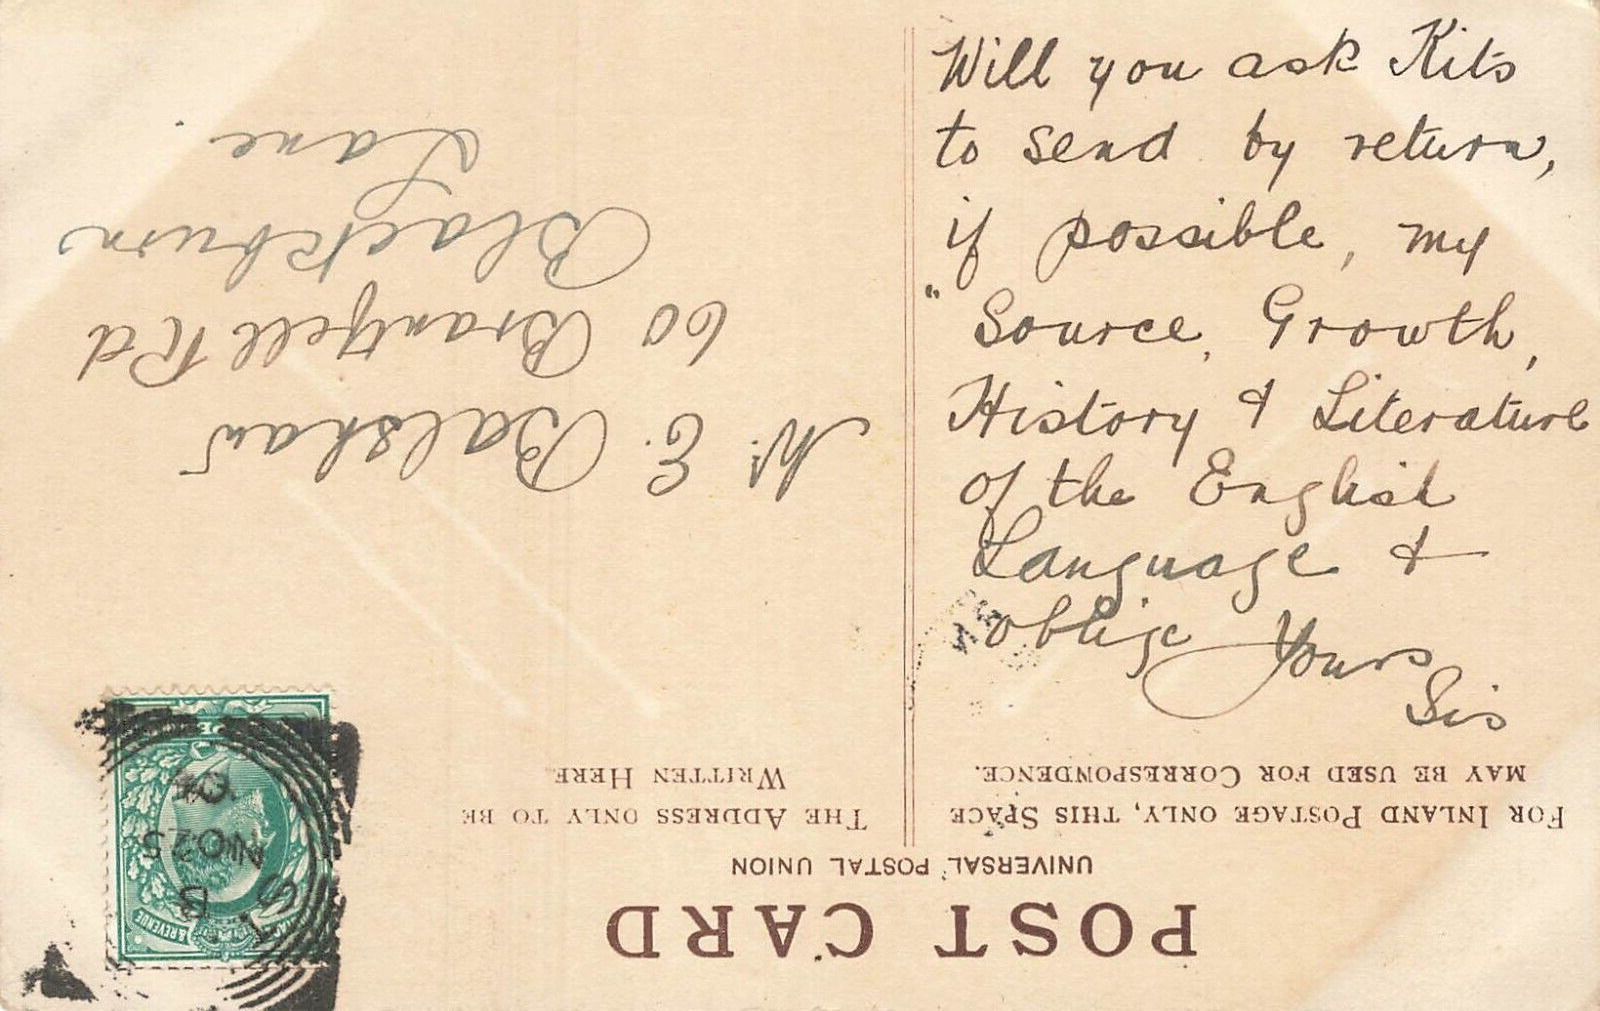 Will you ask Kits
to send by return,
if possible, my
"Source, Growth,
History & Literature
of the English
Language &
oblige Yours
Sis
POST CARD
UNIVERSAL POSTAL UNION
FOR INLAND POSTAGE ONLY, THIS SPACE
MAY BE USED FOR CORRESPONDENCE.
THE ADDRESS ONLY TO BE
WRITTEN HERE.
E. Balshaw
60 Brantfell Rd
Blackburn
Lane
& REVENUE
NO 25
04